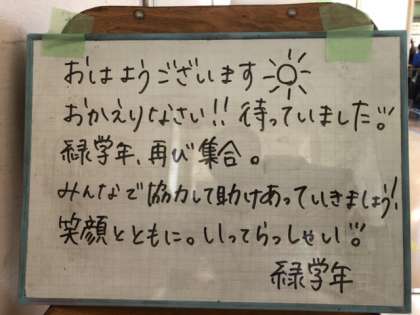 おはようございます
おかえりなさい!! 待っていました!!
緑学年、再び集合。
みんなで協力して助けあっていきましょう!
笑顔とともに。いってらっしゃい!!
緑学年